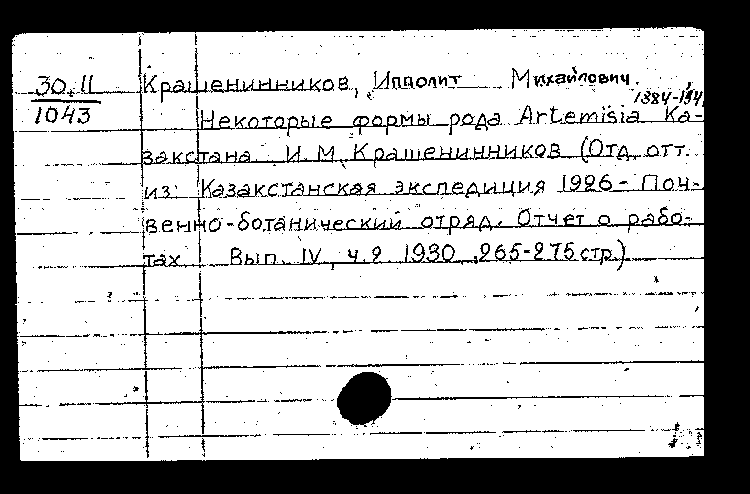 30.II
1043
Крашенинников, Ипполит Михайлович.
1884-194
Некоторые формы рода Artemisia Ка-
закстана. И.М. Крашенинников (Отд. отт.
из: Казакстанская экспедиция 1926- Поч-
венно-ботанический отряд. Отчет о рабо-
тах Вып. IV, ч.2. 1930, 265-275 стр.)